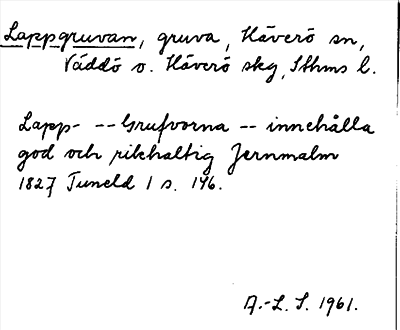 Lappgruvan, gruva, Häverö sn,
Väddö o. Häverö skg, Sthms l.
Lapp- -- Grufvorna -- innehålla
god och rikhaltig Jernmalm
1827 Tuneld 1 s. 146.
A.-L. S. 1961.